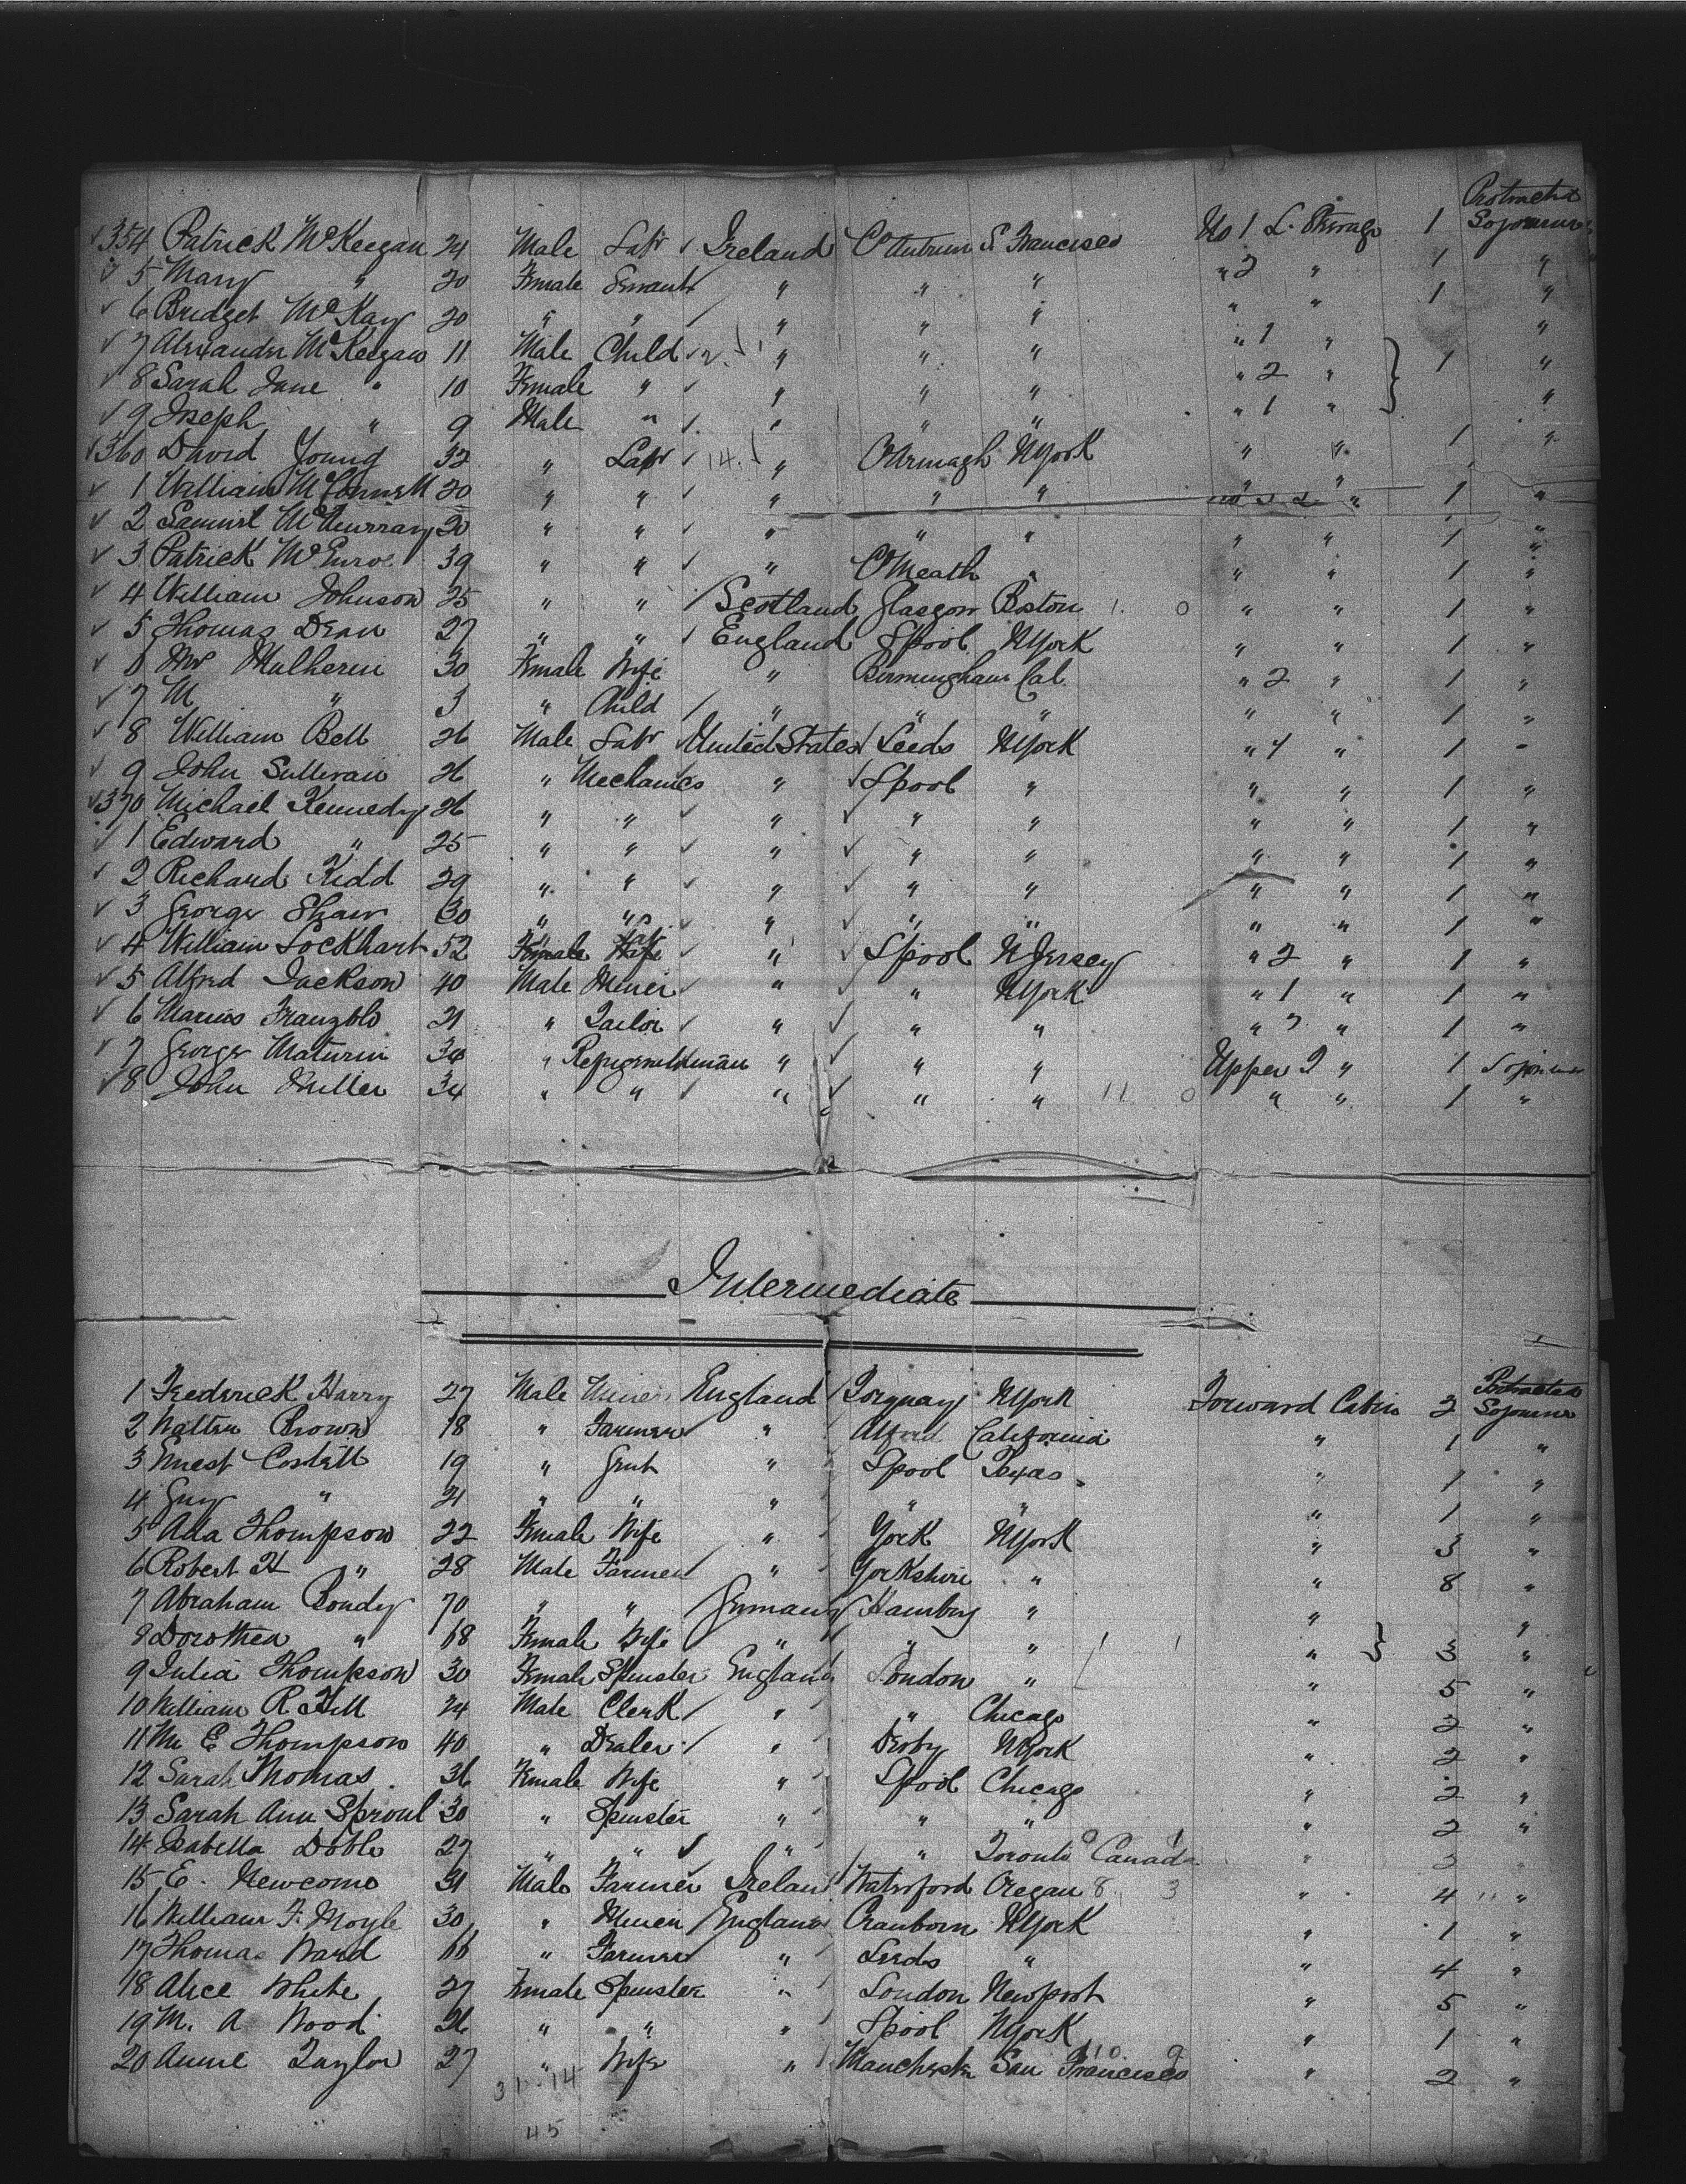 Protracted
354 Patrick McKeegan 24 Male Labr Ireland Co Antrim S. Francisco No 1 L. Sterage 1 Sojourner
5 Mary " 20 Female Servant " " " " 2 " 1 "
6 Bridget McKay 20 " " " " " " " 1 "
7 Alexander McKeegan 11 Male Child " " " " 1 " "
8 Sarah Jane " 10 Female " " " " " 2 " 1 "
9 Joseph " 9 Male " " " " " 1 " "
360 David Young 32 " Labr 14 " Co Armagh NYork " " 1 "
1 William McConnell 20 " " " " " " "
2 Samuel McMurray 20 " " " " " 1 "
3 Patrick McEnroe 39 " " " Co Meath " " " 1 "
4 William Johnson 25 " " Scotland Glasgow Boston 1. 0 " " 1 "
5 Thomas Dean 27 " " England Lpool NYork " " 1 "
6 Mrs Mulheren 30 Female Wife " Birmingham Cal " 2 " 1 "
7 M " 3 " Child " " " " " 1 "
8 William Bell 26 Male Labr United States Leeds NYork " 1 " 1 "
9 John Sullivan 26 " Mechanics " Lpool " " " 1 "
370 Michael Kennedy 26 " " " " " " " 1 "
1 Edward " 25 " " " " " " " 1 "
2 Richard Kidd 29 " " " " " " " 1 "
3 George Shaw 30 " " " " " " " 1 "
4 William Lockhart 52 " Lab " Lpool N Jersey " 2 " 1 "
5 Alfred Jackson 40 Male Miner " " NYork " 1 " 1 "
6 Marius 21 " Tailor " " " " " 1 "
7 George Maturin 34 " " " " Upper 2 " 1 Sojourner
8 John Miller 34 " " " " " 11 0 " " 1 "
Intermediate
Protracted
1 Frederick Harry 27 Male Miner England Torquay NYork Forward Cabin 2 Sojourner
2 Walter Brown 18 " Farmer " Alford California " 1 "
3 Ernest Costell 19 " Gent " Lpool Texas " 1 "
4 Guy " 21 " " " " " " 1 "
5 Ada Thompson 22 Female Wife " York NYork " 3 "
6 Robert H " 28 Male Farmer " Yorkshire " " 8 "
7 Abraham Bondy 70 " " Germany Hamburg " " "
8 Dorothea " 68 Female Wife " " " " 3 "
9 Julia Thompson 30 Female Spinster England London " " 5 "
10 William R Hill 24 Male Clerk " " Chicago " 2 "
11 Mr E Thompson 40 " Dealer " Derby NYork " 2 "
12 Sarah Thomas 36 Female Wife " Lpool Chicago " 2 "
13 Sarah Ann Sproul 30 " Spinster " " " " 2 "
14 Isabella Doble 27 " " " " Toronto Canada " 2 "
15 E. Newcome 31 Male Farmer Ireland Waterford Oregan 8 3 " 4 "
16 William F. Moyle 30 " Miner England Cranborn NYork " 1 "
17 Thomas Ward 66 " Farmer " Leeds " " 4 "
18 Alice White 27 Female Spinster " London Newport " 5 "
19 M. A Wood 26 " " " Lpool NYork " 1 "
20 Annie Taylor 27 " Wife " Manchester San Francisco " 2 "
31 - 14
45